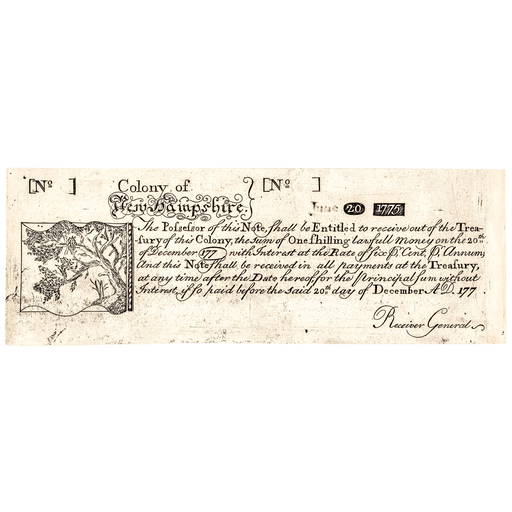 [No ] Colony of } [No ]
New Hampshire. June 20 1775
The Possessor of this Note, shall be Entitled to receive out of the Trea-
sury of this Colony, the sum of One shilling lawfull Money on the 20th
of December 177 with Interest at the Rate of six P Cent, P Annum,
And this Note shall be received in all payments at the Treasury,
at any time after the Date hereof for the Principal sum without
Interest, if so paid before the said 20th day of December A.D. 177
Receiver General